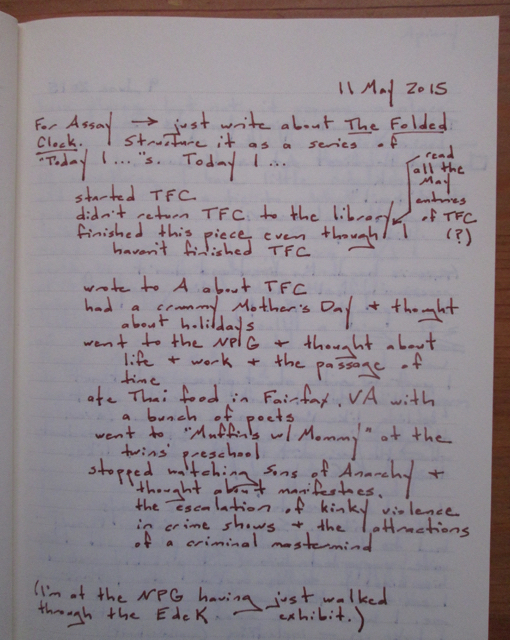 11 May 2015
For Assay → just write about The Folded
Clock. Structure it as a series of
"Today I ..."s. Today I ...
read
all the
May
entries
of TFC
(?)
started TFC
didn't return TFC to the library
finished this piece even though I
haven't finished TFC
wrote to A about TFC
had a crummy Mother's Day + thought
about holidays
went to the NPG + thought about
life + work + the passage of
time
ate Thai food in Fairfax, VA with
a bunch of poets
went to "Muffins w/ Mommy" at the
twins' preschool
stopped watching Sons of Anarchy +
thought about manifestoes,
the escalation of kinky violence
in crime shows + the attractions
of a criminal mastermind
(I'm at the NPG having just walked
through the EdeK exhibit.)